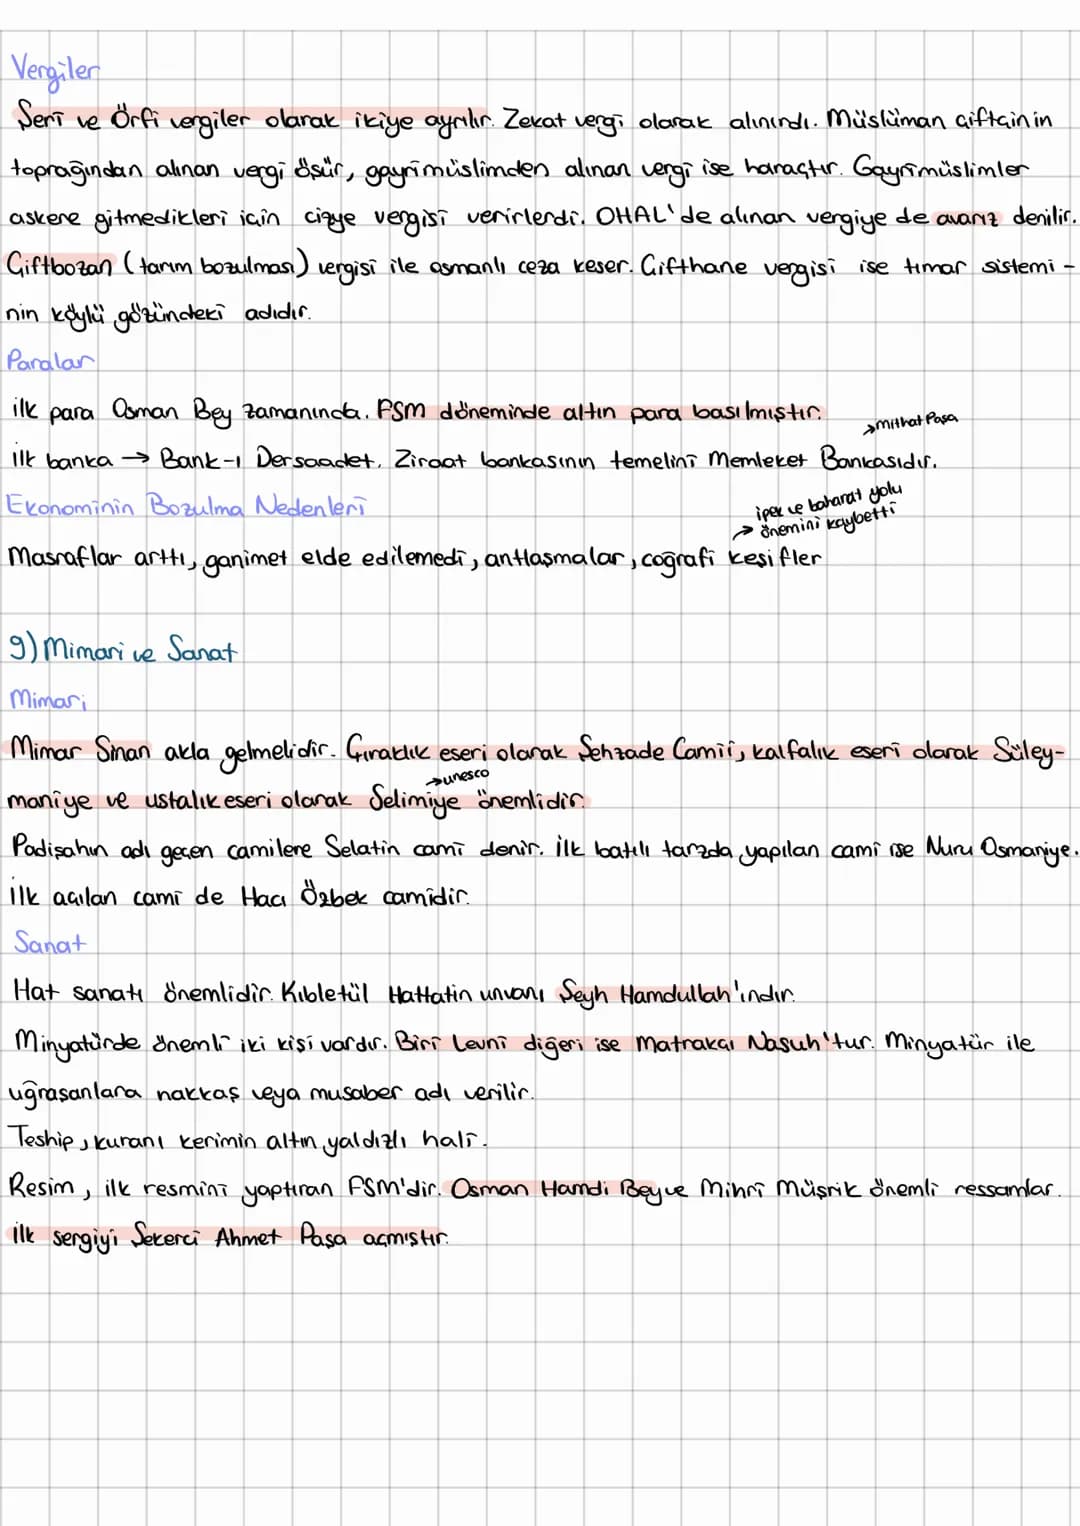 Vergiler
Şeri ve Örfi vergiler olarak ikiye ayrılır. Zekat vergi olarak alınındı. Müslüman çiftçinin
toprağından alınan vergi öşür, gayrimüslimden alınan vergi ise haraçtır. Gayrimüslimler
askere gitmedikleri için cizye vergisi verirlerdi. OHAL'de alınan vergiye de avarız denilir.
Çiftbozan (tarım bozulması) vergisi ile osmanlı ceza keser. Çifthane vergisi ise tımar sistemi-
nin köylü gözündeki adıdır.
Paralar
ilk para Osman Bey zamanında. FSM döneminde altın para basılmıştır.
→Mithat Paşa
ilk banka → Bank-ı Dersaadet. Ziraat bankasının temelini Memleket Bankasıdır.
Ekonominin Bozulma Nedenleri
ipek ve baharat yolu
→ önemini kaybetti
Masraflar arttı, ganimet elde edilemedi, antlaşmalar, coğrafi keşifler
9) Mimari ve Sanat
Mimari
Mimar Sinan akla gelmelidir. Çıraklık eseri olarak Şehzade Camii, kalfalık eseri olarak Süley-
→unesco
maniye ve ustalık eseri olarak Selimiye önemlidir.
Padişahın adı geçen camilere Selatin cami denir. İlk batılı tarzda yapılan cami ise Nuru Osmaniye.
İlk açılan cami de Hacı Özbek camidir.
Sanat
Hat sanatı önemlidir. Kıbletül Hattatin unvanı Şeyh Hamdullah'ındır.
Minyatürde önemli iki kişi vardır. Biri Levni diğeri ise Matrakçı Nasuh'tur. Minyatür ile
uğraşanlara nakkaş veya musaber adı verilir.
Teship, kuranı kerimin altın yaldızlı hali.
Resim, ilk resmini yaptıran FSM'dir. Osman Hamdi Bey ve Mihri Müşrik önemli ressamlar.
İlk sergiyi Şekerci Ahmet Paşa açmıştır.